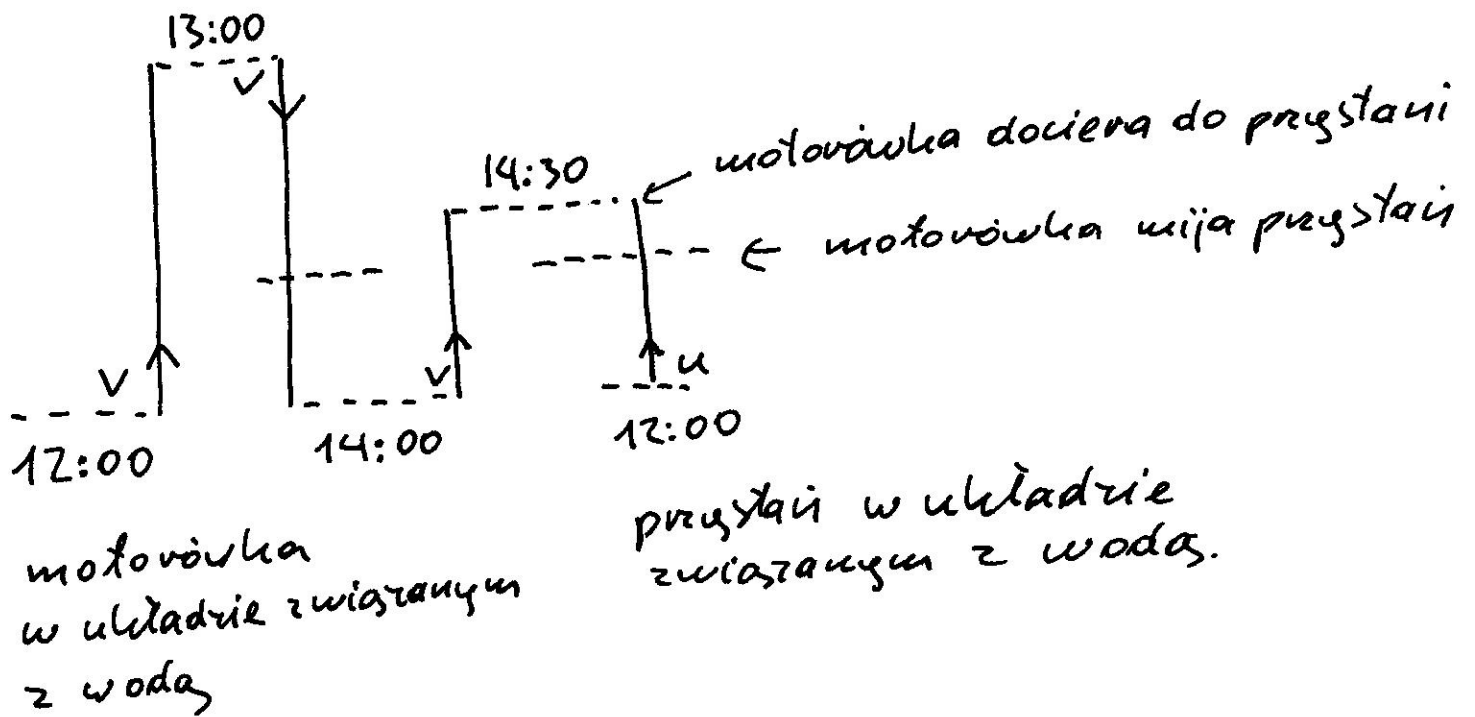 13:00
v
14:30
motorówka dociera do przystani
motorówka mija przystań
v
v
u
12:00
14:00
12:00
motorówka
w układzie związanym
z wodą
przystań w układzie
związanym z wodą.